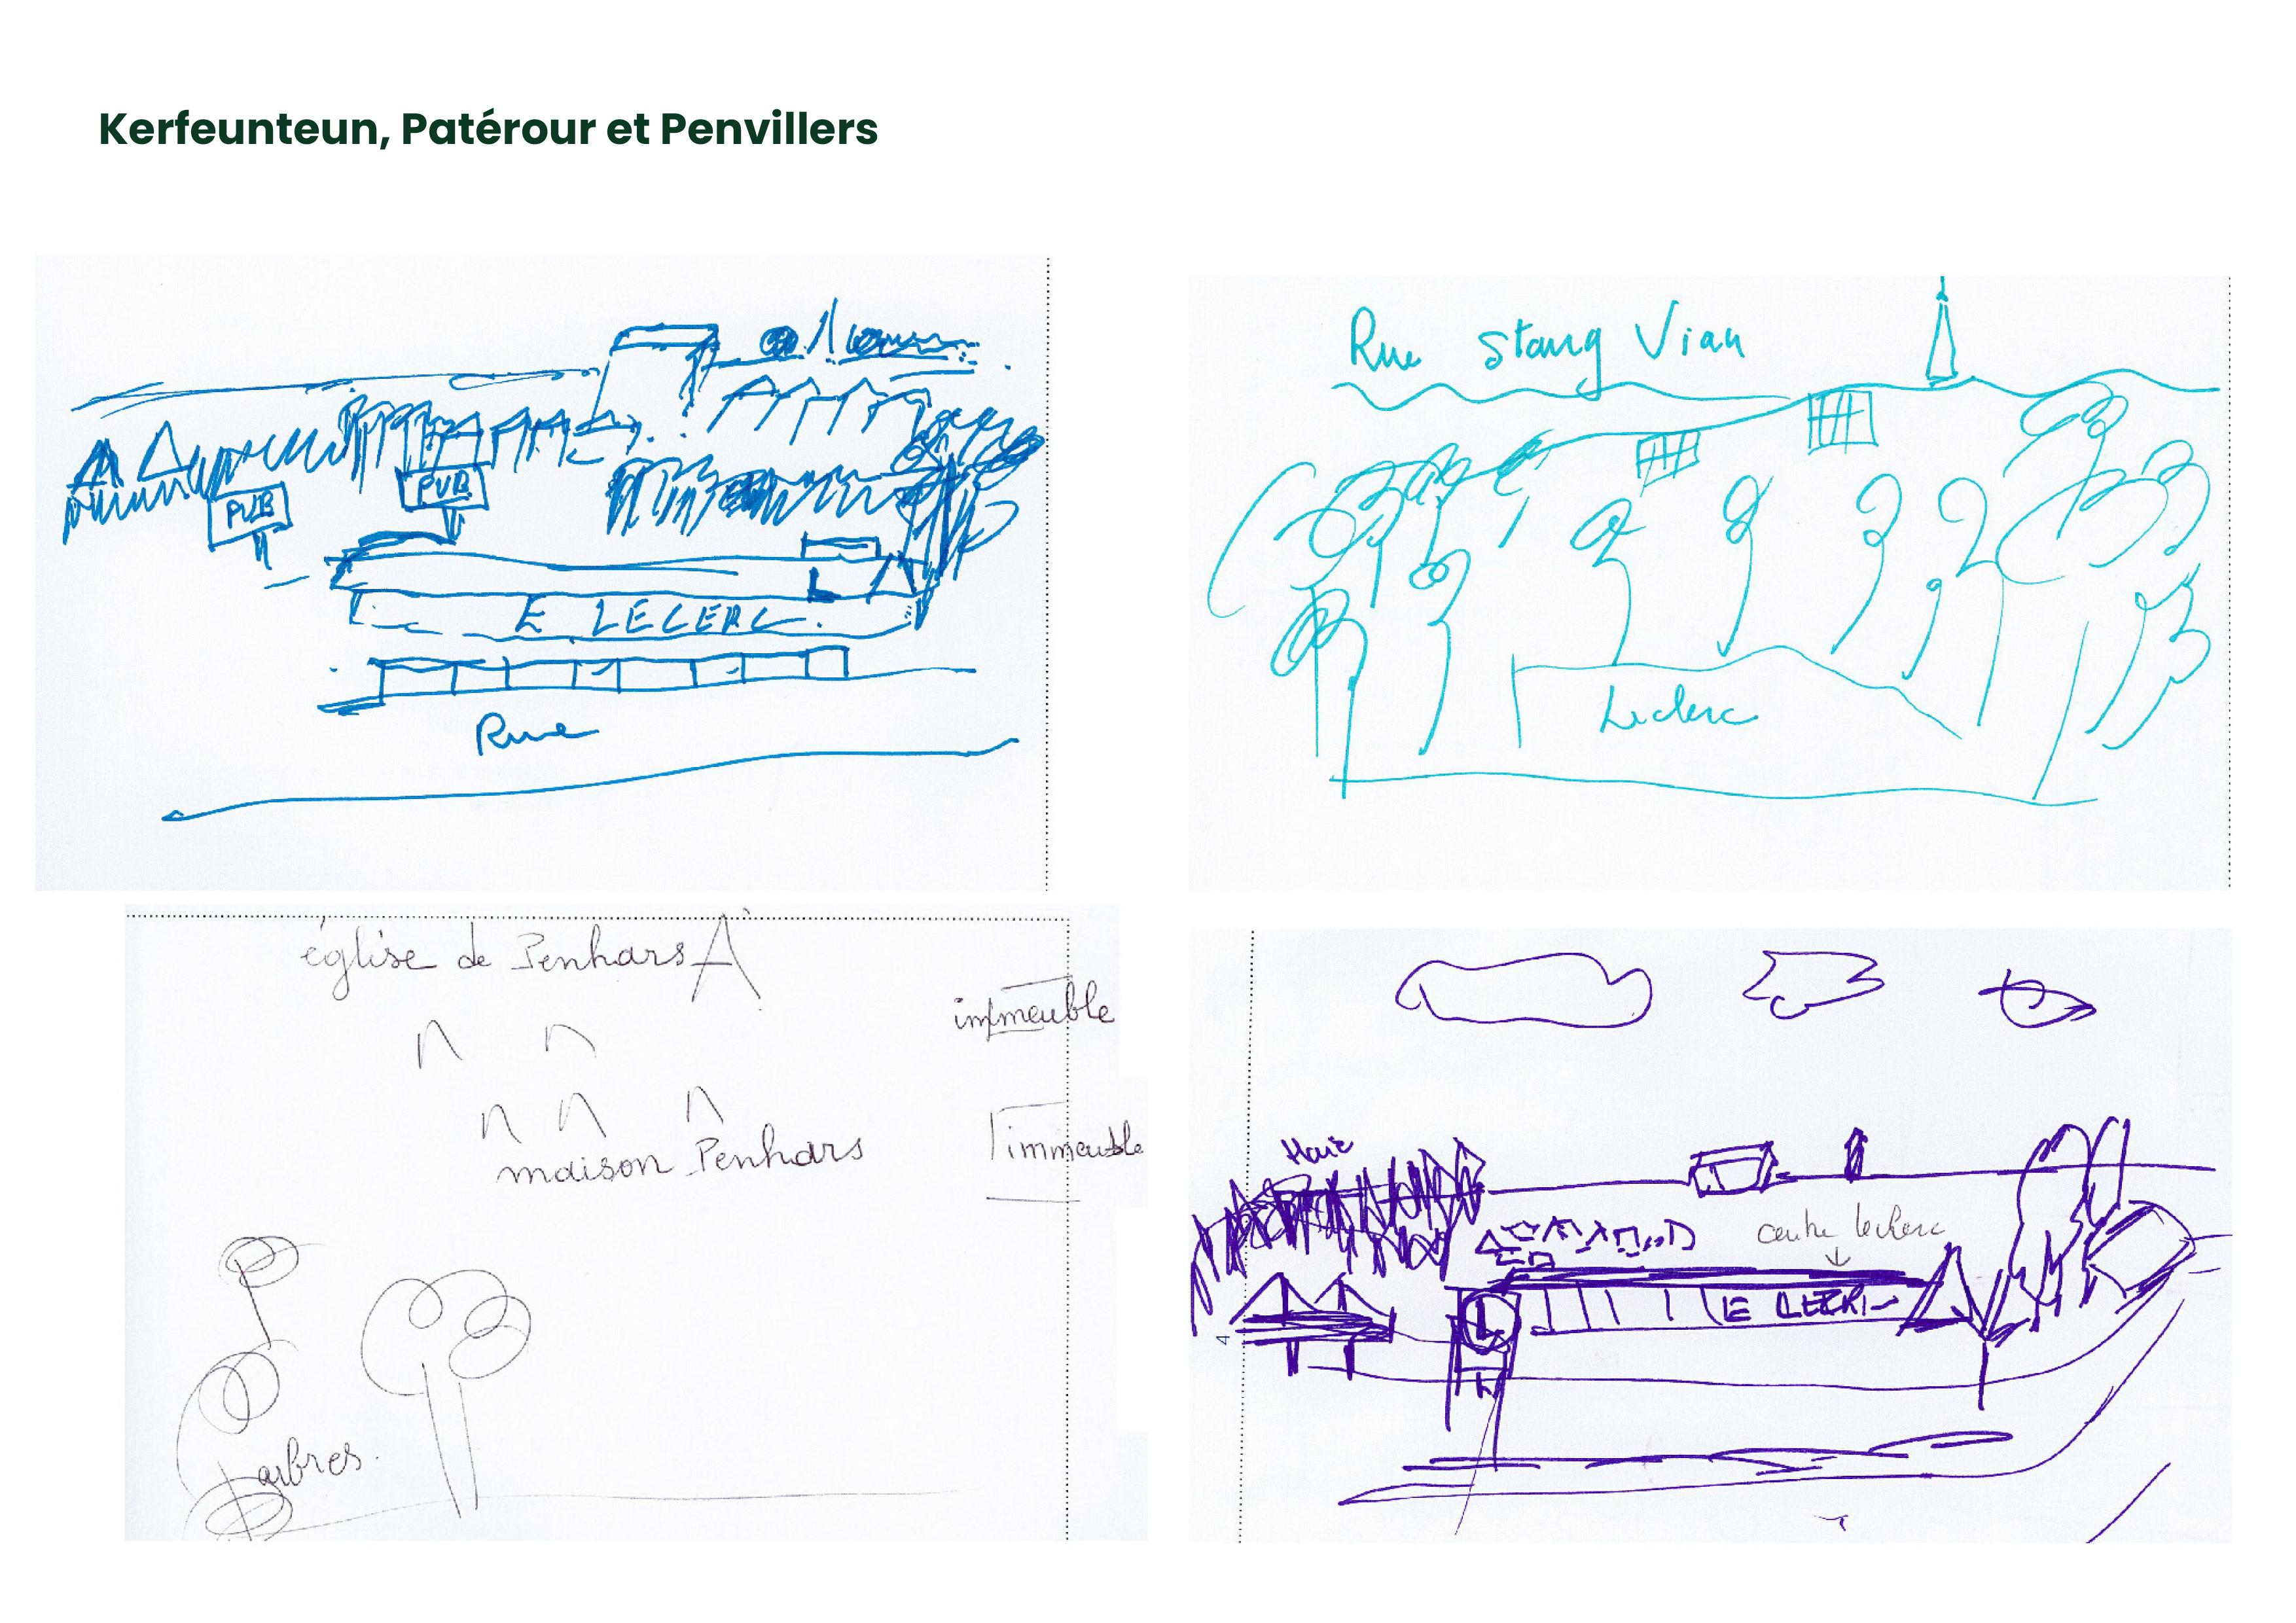 Kerfeunteun, Patérour et Penvillers
PUB
PUB
L
E LECLERC
Rue
Rue Stang Vian
Leclerc
église de Penhars
immeuble
immeuble
maison Penhars
arbres.
Haie
centre leclerc
L
E
4